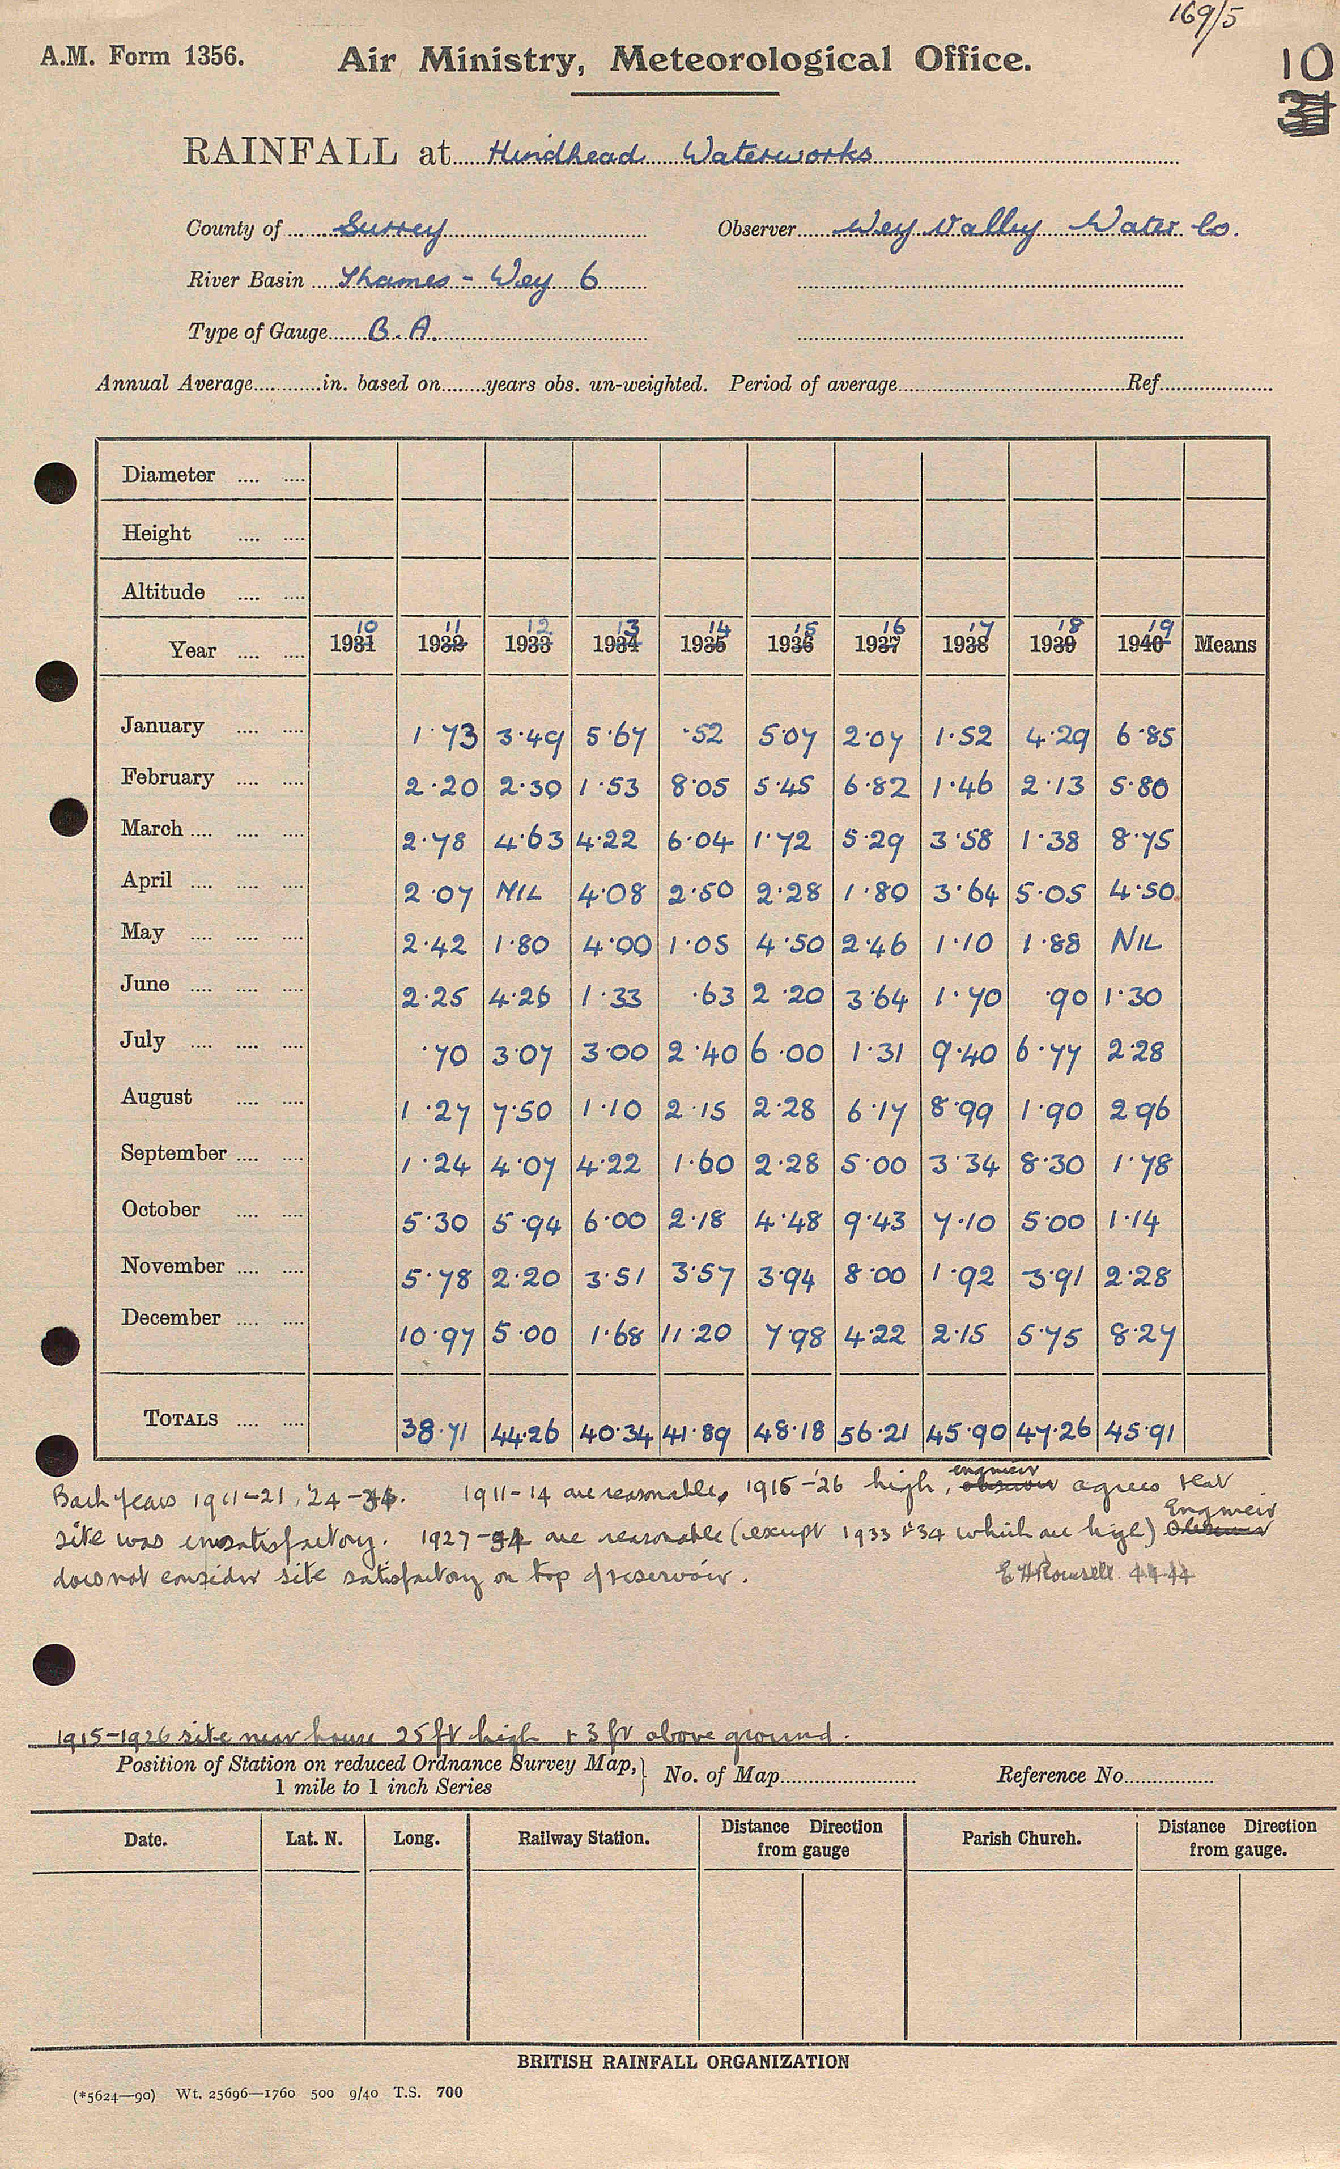 169/5
A.M. Form 1356. Air Ministry, Meteorological Office.
10
31
RAINFALL at Hindhead Waterworks
County of Surrey Observer Wey Valley Water Co.
River Basin Thames - Wey 6
Type of Gauge B.A.
Annual Average in. based on years obs. un-weighted. Period of average Ref.
Diameter
Height
Altitude
10 11 12 13 14 15 16 17 18 19
Year 1931 1932 1933 1934 1935 1936 1937 1938 1939 1940 Means
January 1.73 3.49 5.67 .52 5.07 2.07 1.52 4.29 6.85
February 2.20 2.30 1.53 8.05 5.45 6.82 1.46 2.13 5.80
March 2.78 4.63 4.22 6.04 1.72 5.29 3.58 1.38 8.75
April 2.07 NIL 4.08 2.50 2.28 1.80 3.64 5.05 4.50
May 2.42 1.80 4.00 1.05 4.50 2.46 1.10 1.88 NIL
June 2.25 4.26 1.33 .63 2.20 3.64 1.70 .90 1.30
July .70 3.07 3.00 2.40 6.00 1.31 9.40 6.77 2.28
August 1.27 7.50 1.10 2.15 2.28 6.17 8.99 1.90 2.96
September 1.24 4.07 4.22 1.60 2.28 5.00 3.34 8.30 1.78
October 5.30 5.94 6.00 2.18 4.48 9.43 7.10 5.00 1.14
November 5.78 2.20 3.51 3.57 3.94 8.00 1.92 3.91 2.28
December 10.97 5.00 1.68 11.20 7.98 4.22 2.15 5.75 8.27
TOTALS 38.71 44.26 40.34 41.89 48.18 56.21 45.90 47.26 45.91
Back years 1911-21, '24- 1911-14 are reasonable, 1915-'26 high, engineer agrees that
site was unsatisfactory. 1927-34 are reasonable (except 1933 & 34 which are high) Engineer
does not consider site satisfactory on top of reservoir. E H Rowsell 4.4.44
1915-1926 site near house 25 ft high & 3 ft above ground.
Position of Station on reduced Ordnance Survey Map, 1 mile to 1 inch Series } No. of Map Reference No.
Date. Lat. N. Long. Railway Station. Distance Direction from gauge Parish Church. Distance Direction from gauge.
BRITISH RAINFALL ORGANIZATION
(*5624—90) Wt. 25696—1760 500 9/40 T.S. 700